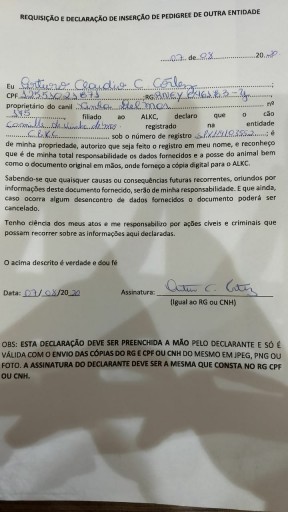 REQUISIÇÃO E DECLARAÇÃO DE INSERÇÃO DE PEDIGREE DE OUTRA ENTIDADE
07 de 08 2020
Eu Arturo Claudio C. Cortez
CPF ;RG
proprietário do canil nº
, filiado ao ALKC, declaro que o cão
registrado na entidade
CBKC sob o número de registro ; é
de minha propriedade, autorizo que seja feito o registro em meu nome, e reconheço
que é de minha total responsabilidade os dados fornecidos e a posse do animal bem
como o documento original em mãos, onde forneço a cópia digital para o ALKC.
Sabendo-se que quaisquer causas ou consequências futuras recorrentes, oriundos por
informações deste documento fornecido, serão de minha responsabilidade. E que ainda,
caso ocorra algum desencontro de dados fornecidos o documento poderá ser
cancelado.
Tenho ciência dos meus atos e me responsabilizo por ações cíveis e criminais que
possam recorrer sobre as informações aqui declaradas.
O acima descrito é verdade e dou fé
Data: 07/08/2020 Assinatura:
(Igual ao RG ou CNH)
OBS: ESTA DECLARAÇÃO DEVE SER PREENCHIDA A MÃO PELO DECLARANTE E SÓ É
VÁLIDA COM O ENVIO DAS CÓPIAS DO RG E CPF OU CNH DO MESMO EM JPEG, PNG OU
FOTO. A ASSINATURA DO DECLARANTE DEVE SER A MESMA QUE CONSTA NO RG CPF
OU CNH.